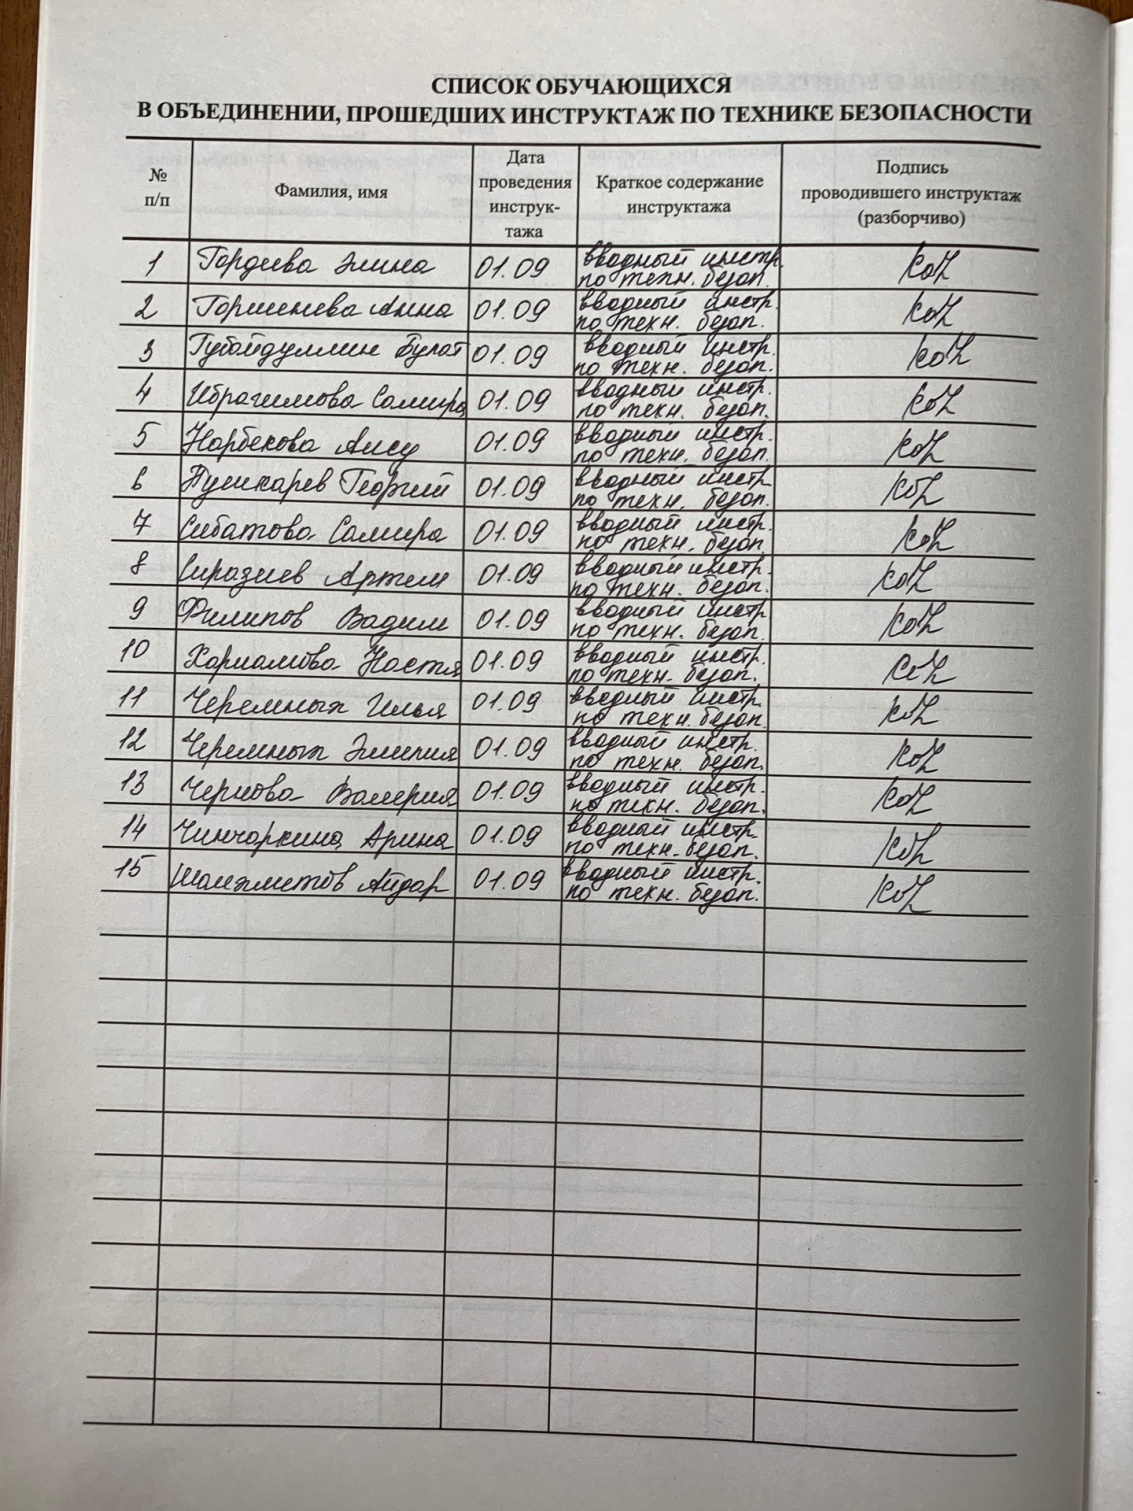 СПИСОК ОБУЧАЮЩИХСЯ
В ОБЪЕДИНЕНИИ, ПРОШЕДШИХ ИНСТРУКТАЖ ПО ТЕХНИКЕ БЕЗОПАСНОСТИ
№ п/п
Фамилия, имя
Дата проведения инструк-тажа
Краткое содержание инструктажа
Подпись проводившего инструктаж (разборчиво)
1 Гордеева Элина 01.09 вводный инстр.
по техн. безоп.
2 Горшенева Анна 01.09 вводный инстр.
по техн. безоп.
3 Губайдуллин Булат 01.09 вводный инстр.
по техн. безоп.
4 Ибрагимова Самира 01.09 вводный инстр.
по техн. безоп.
5 Нарбекова Алсу 01.09 вводный инстр.
по техн. безоп.
6 Пушкарев Георгий 01.09 вводный инстр.
по техн. безоп.
7 Сибатова Самира 01.09 вводный инстр.
по техн. безоп.
8 Сиразиев Артем 01.09 вводный инстр.
по техн. безоп.
9 Филипов Вадим 01.09 вводный инстр.
по техн. безоп.
10 Харламова Настя 01.09 вводный инстр.
по техн. безоп.
11 Черемных Илья 01.09 вводный инстр.
по техн. безоп.
12 Черемных Эмилия 01.09 вводный инстр.
по техн. безоп.
13 Чернова Валерия 01.09 вводный инстр.
по техн. безоп.
14 Чинчаркина Арина 01.09 вводный инстр.
по техн. безоп.
15 Шаяхметов Айдар 01.09 вводный инстр.
по техн. безоп.